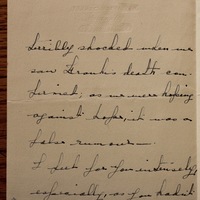 terribly shocked when we
saw Frank's death con-
firmed, as we were hoping
against hope, it was a
false rumour.
I feel for you intensely,
especially, as you hadn't